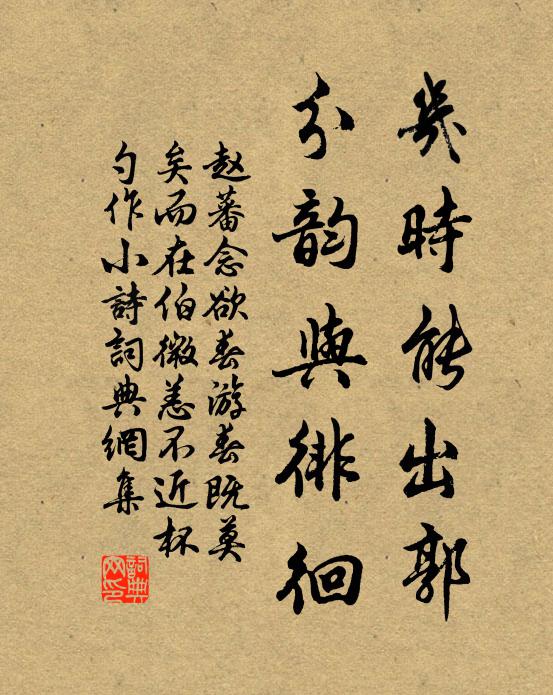 幾時能出郭
分韵與徘徊
赵蕃念欲春游春既莫
矣而在伯微恙不近杯
勺作小詩詞典網集
詞典网印